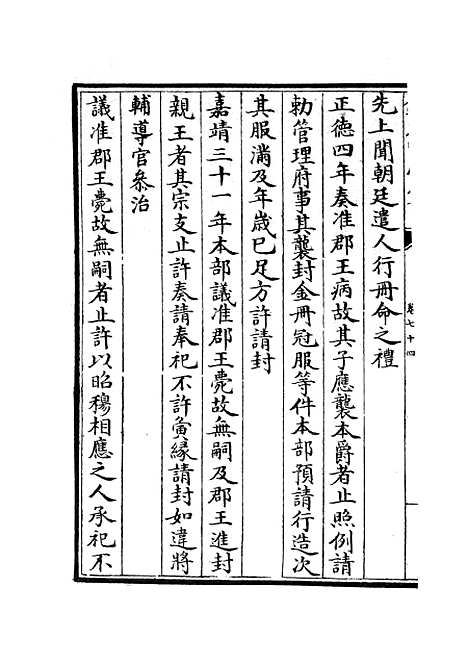 先上聞朝廷遣人行冊命之禮
正德四年奏准郡王病故其子應襲本爵者止照例請
勅管理府事其襲封金冊冠服等件本部預請行造次
其服滿及年歲已足方許請封
嘉靖三十一年本部議准郡王薨故無嗣及郡王進封
親王者其宗支止許奏請奉祀不許夤緣請封如違將
輔導官叅治
議准郡王薨故無嗣者止許以昭穆相應之人承祀不
卷七十四